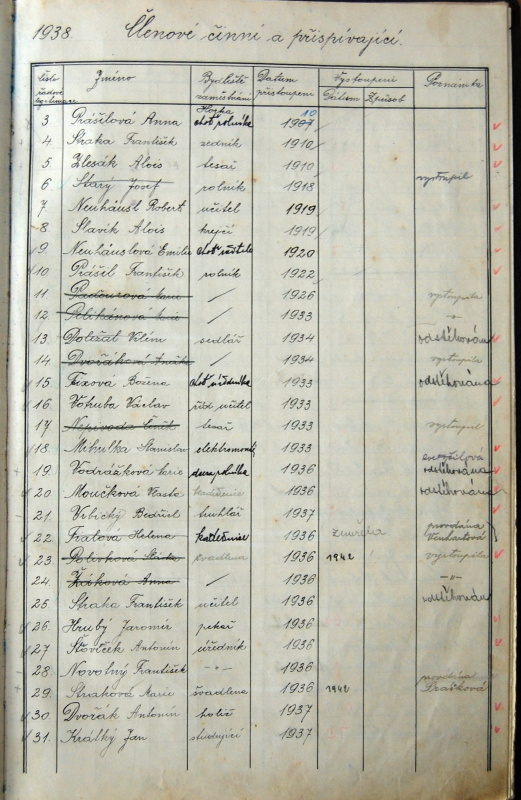 1938. Členové činní a přispívající.
číslo řadové Jméno Bydliště zaměstnání Datum přistoupení Vystoupení Datum Způsob Poznámka
3 Prášilová Anna choť rolníka 1907 10
4 Straka František zedník 1910
5 Zlesák Alois tesař 1910
6 Starý Josef rolník 1918 vystoupil
7. Neuhäusl Robert učitel 1919
8 Slavík Alois krejčí 1919
9. Neuhäuslová Emilie choť učitele 1920
10. Prášil František rolník 1922
11. / 1926 vystoupila
12. / 1933 -"-
13. Doležal Vilém sedlář 1934 odstěhován
14 Dvořáková / 1934 vystoupila
15. Fixová Božena choť úředníka 1933 odstěhována
16. Votruba Václav říd. učitel 1933
17. Nepivoda tesař 1933 vystoupil
18. Mihulka Stanislav elektromont 1933
19. Vodrážková Marie 1936 odstěhována
20. Moučková Vlasta 1936 odstěhována
21. Vrbický Bedřich truhlář 1937
22. Fialová Helena 1936 zemřela provdána
23. švadlena 1936 1942 vystoupila
24 Anna / 1936 -"-
25. Straka František učitel 1936 odstěhován
26. Hrubý Jaromír pekař 1936
27. Antonín úředník 1936
28. Novotný František -"- 1936
29. Straková Marie švadlena 1936 1942
30. Dvořák Antonín holič 1937
31. Krátký Jan studující 1937